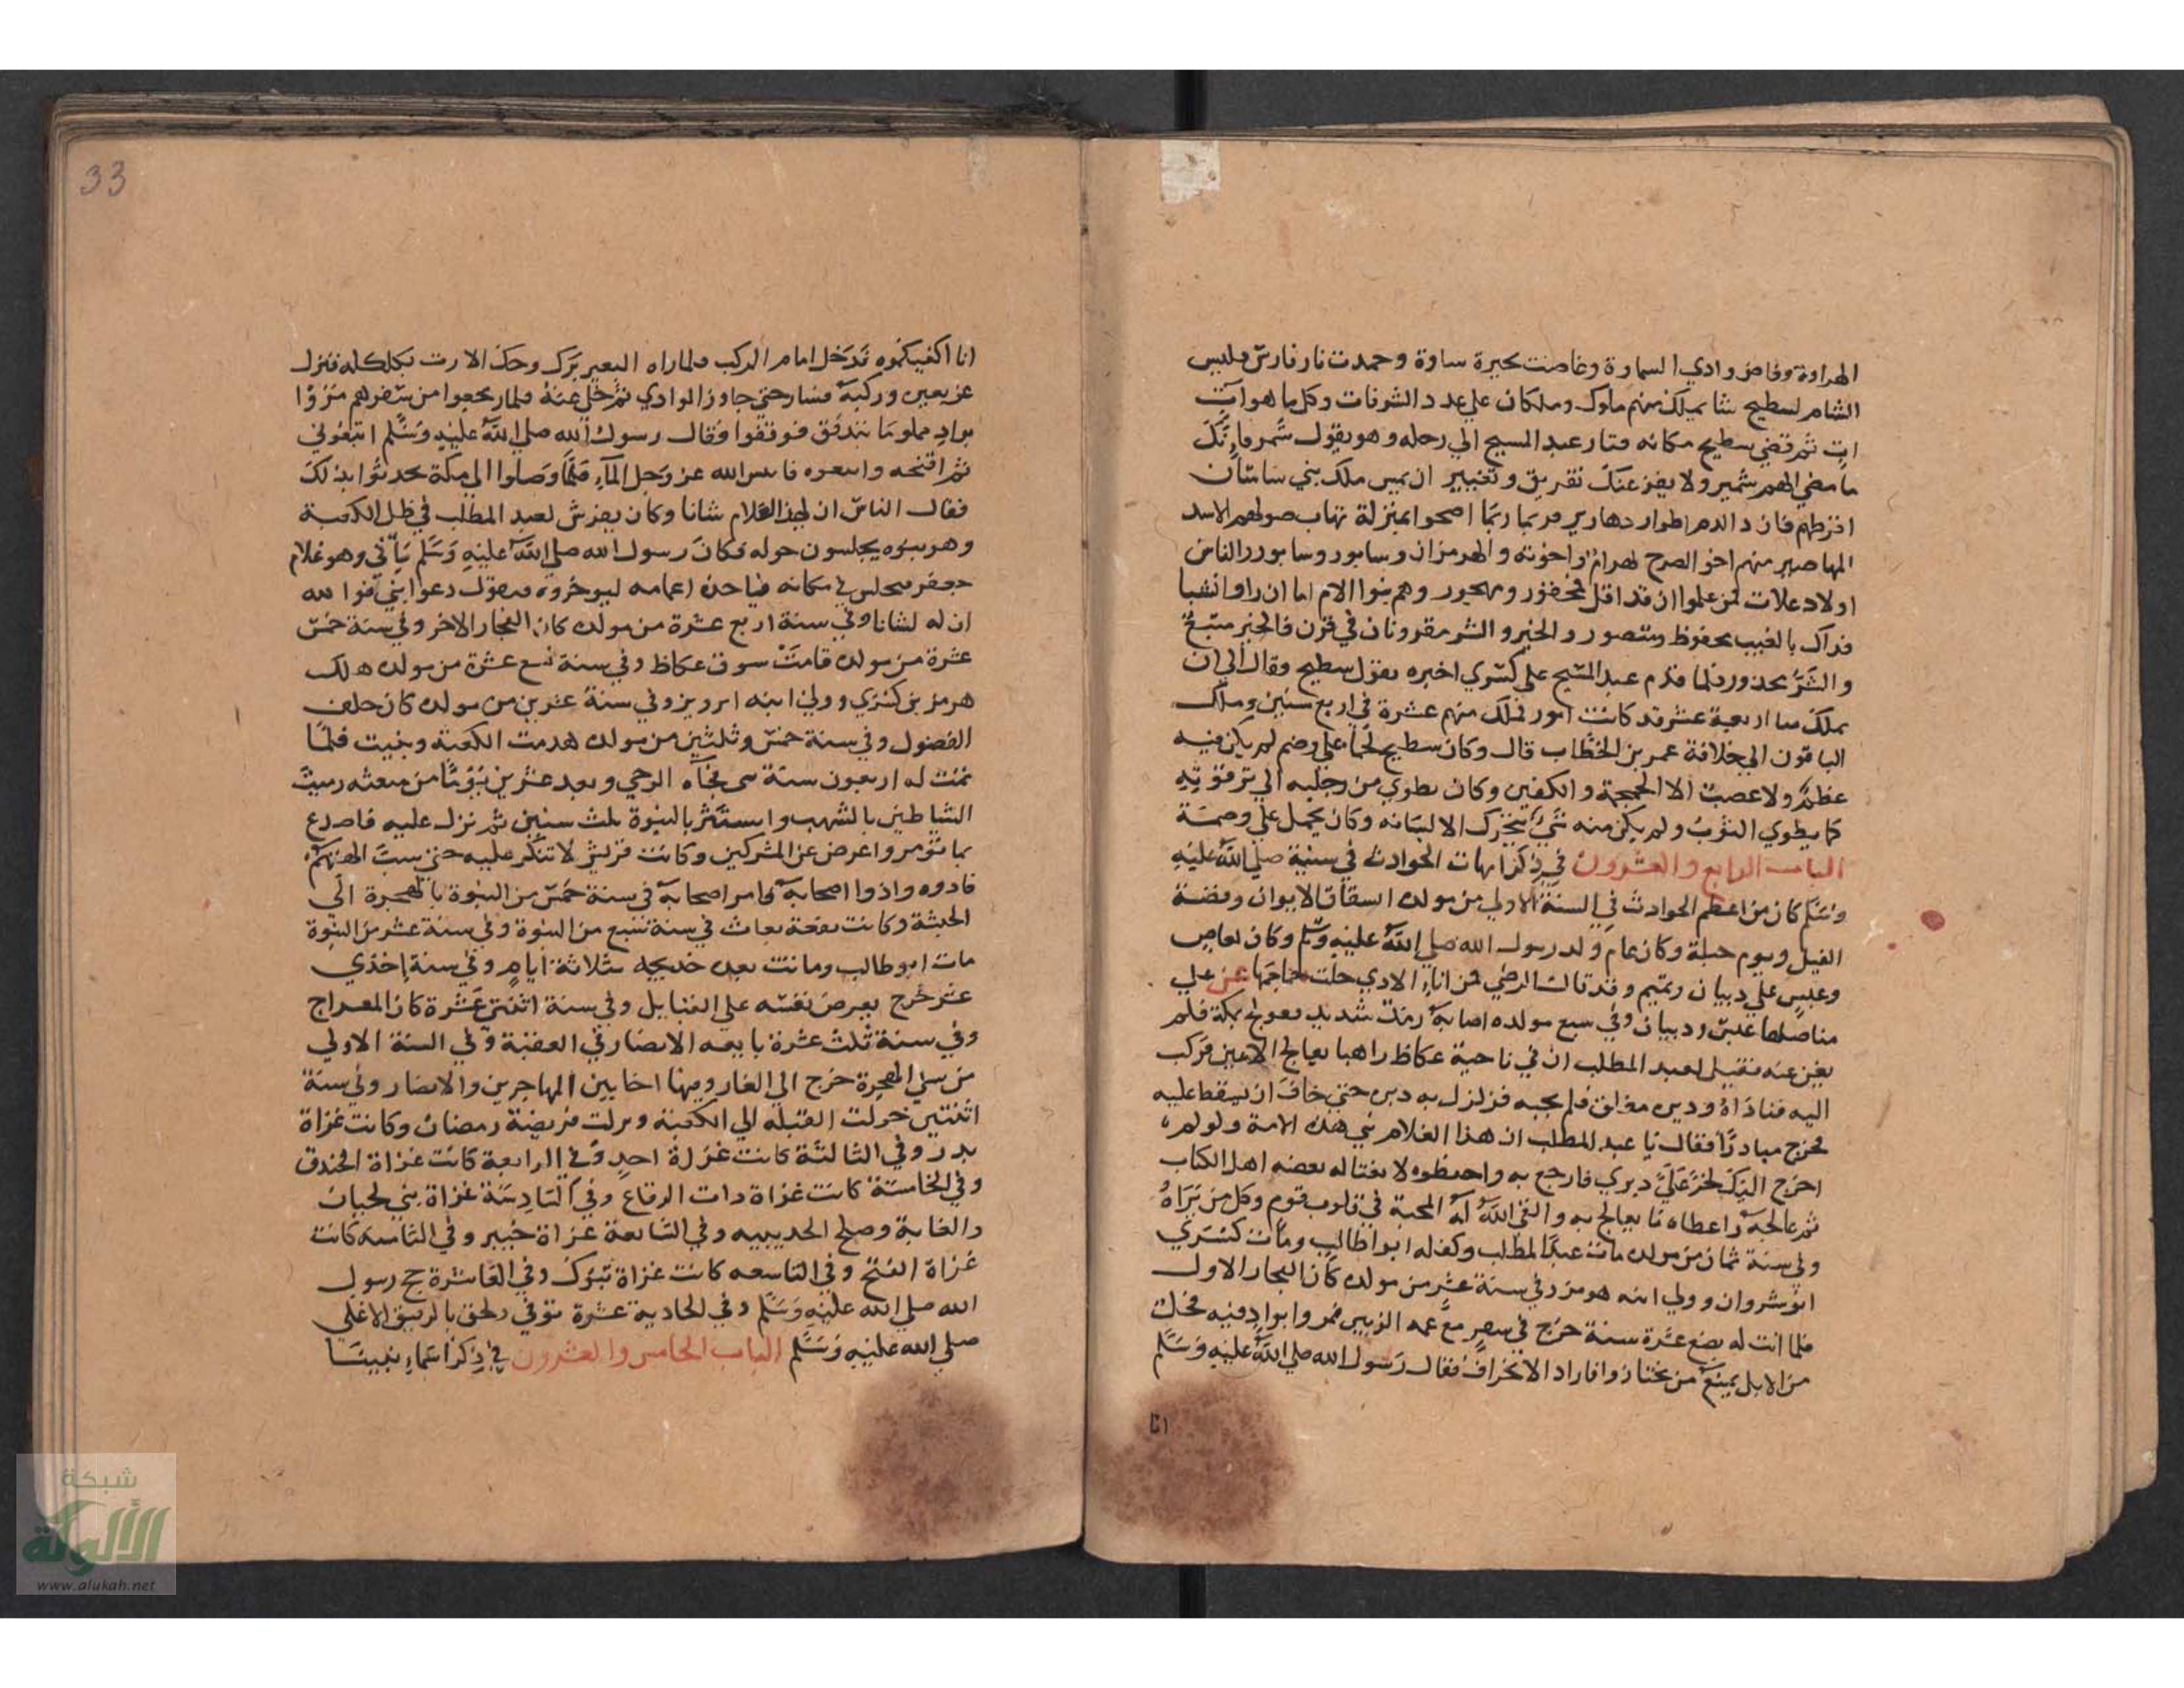 الهراوة وفاض وادي السماوة وغاضت بحيرة ساوة وخمدت نار فارس فليس
الشام لسطيح شاما يملك منهم ملوك وملكات علي عدد الشرفات وكل ما هو آت
ات ثم قضي سطيح مكانه فثار عبد المسيح الي رحله وهو يقول شمر فانك
ما مضي الهم شمير ولا يفزعنك تفريق وتغيير ان يمس ملك بني ساسان
افرطهم فان ذا الدهر اطوار دهارير فربما ربما اضحوا بمنزلة تهاب صولهم الاسد
المهاصير منهم اخو الصرح بهرام واخوته والهرمزان وسابور وسابور والناس
اولاد علات فمن علموا ان قد اقل فمحقور ومهجور وهم بنوا الام اما ان راوا نشبا
فذاك بالغيب محفوظ ومنصور والخير والشر مقرونان في قرن فالخير متبع
والشر محذور فلما قدم عبد المسيح علي كسري اخبره بقول سطيح وقال الي ان
يملك منا اربعة عشر قد كانت امور فملك منهم عشرة في اربع سنين وملك
الباقون الي خلافة عمر بن الخطاب قال وكان سطيح لحما علي وضم لم يكن فيه
عظم ولا عصب الا الجمجمة والكفين وكان يطوي من رجليه الي ترقوتيه
كما يطوي الثوب ولم يكن منه شيء يتحرك الا لسانه وكان يحمل علي وضمة
الباب الرابع والعشرون في ذكر امهات الحوادث في سنيه صلي الله عليه
وسلم كان من اعظم الحوادث في السنة الاولي من مولده انشقاق الايوان وقصة
الفيل ويوم جبلة وكان عام ولد رسول الله صلي الله عليه وسلم وكان لعامر
وعبس علي ذبيان وتميم وقد قال الرضي
مناصلها عبس وذبيان وفي سبع مولده اصابه رمد شديد فعولج بمكة فلم
يغن عنه فقيل لعبد المطلب ان في ناحية عكاظ راهبا يعالج الاعين فركب
اليه فناداه وديره مغلق فلم يجبه فزلزل به ديره حتي خاف ان يسقط عليه
فخرج مبادرا فقال يا عبد المطلب ان هذا الغلام نبي هذه الامة ولو لم
اخرج اليك لخر علي ديري فارجع به واحفظوه لا يغتاله بعض اهل الكتاب
ثم عالجه واعطاه ما يعالج به والقي الله له المحبة في قلوب قوم وكل من يراه
وفي سنة ثمان من مولده مات عبد المطلب وكفله ابوا طالب ومات كسري
انوشروان وولي ابنه هومز وفي سنة عشر من مولده كان الفجار الاول
فلما اتت له بضع عشرة سنة خرج في سفر مع عمه الزبير فمروا بواد فيه فحل
من الابل يمنع من يجتاز وافاراد الانحراف فقال رسول الله صلي الله عليه وسلم
انا
33
انا اكفيكموه فدخل امام الركب فلما راه البعير برك وحك الارض بكلكله فنزل
عن بعيره وركبه فسار حتي جاوز الوادي ثم خلي عنه فلما رجعوا من سفرهم مروا
بواد مملو ما يتدفق فوقفوا فقال رسول الله صلي الله عليه وسلم اتبعوني
ثم اقتحمه واتبعوه فايبس الله عز وجل الماء فلما وصلوا الي مكة تحدثوا بذلك
فقال الناس ان لهذا الغلام شانا وكان يفرش لعبد المطلب في ظل الكعبة
وهو وبنوه يجلسون حوله فكان رسول الله صلي الله عليه وسلم ياتي وهو غلام
جفر فيجلس في مكانه فياخذه اعمامه ليوخروه فيقول دعوا ابني فوا لله
ان له لشانا وفي سنة اربع عشرة من مولده كان الفجار الاخر وفي سنة خمس
عشرة من مولده قامت سوق عكاظ وفي سنة تسع عشرة من مولده هلك
هرمز بن كسري وولي ابنه ابرويز وفي سنة عشرين من مولده كان حلف
الفضول وفي سنة خمس وثلثين من مولده هدمت الكعبة وبنيت فلما
تمت له اربعون سنة فجاه الوحي وبعد عشرين يوما من مبعثه رميت
الشياطين بالشهب واستتر بالنبوة ثلث سنين ثم نزل عليه فاصدع
بما تومر واعرض عن المشركين وكانت قريش لا تنكر عليه حتي سب الهتهم
فاذوه واذوا اصحابه وامر اصحابه في سنة خمس من النبوة بالهجرة الي
الحبشة وكانت وقعة بعاث في سنة تسع من النبوة وفي سنة عشر من النبوة
مات ابو طالب وماتت بعده خديجه بثلاثة ايام وفي سنة إحدي
عشر خرج يعرض نفسه علي القبايل وفي سنة اثنتي عشرة كان المعراج
وفي سنة ثلث عشرة بايعه الانصار في العقبة وفي السنة الاولي
من سني الهجرة خرج الي الغار وفيها اخا بين المهاجرين والانصار وفي سنة
اثنتين حولت القبلة الي الكعبة ونزلت فريضة رمضان وكانت غزاة
بدر وفي الثالثة كانت غزاة احد وفي الرابعة كانت غزاة الخندق
وفي الخامسة كانت غزاة ذات الرقاع وفي السادسة غزاة بني لحيان
والغابة وصلح الحديبيه وفي السابعة غزاة خيبر وفي الثامنه كانت
غزاة الفتح وفي التاسعه كانت غزاة تبوك وفي العاشرة حج رسول
الله صلي الله عليه وسلم وفي الحادية عشرة توفي ولحق بالرفيق الاعلي
صلي الله عليه وسلم الباب الخامس والعشرون في ذكر اسماء نبينا
شبكة
الألوكة
www.alukah.net